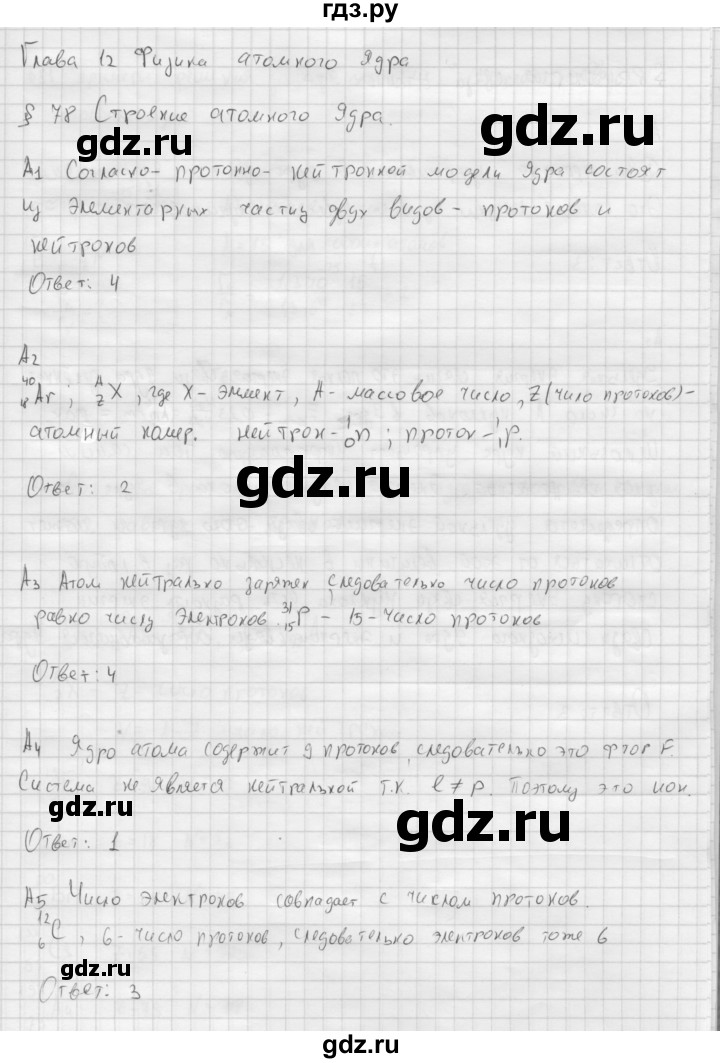 гдз.ру
Глава 12 Физика атомного ядра
§ 78 Строение атомного ядра.
gdz.ru
gdz.ru
А1 Согласно- протонно- нейтронной модели ядра состоят
из элементарных частиц двух видов - протонов и
gdz.ru
нейтронов
Ответ: 4
А2
⁴⁰₁₈Ar ; ᴬ_ZX , где X- элемент, A- массовое число, Z(число протонов)-
атомный номер. нейтрон- ¹₀n ; протон - ¹₁p.
gdz.ru
Ответ: 2
gdz.ru
А3 Атом нейтрально заряжен, следовательно число протонов
равно числу электронов. ³¹₁₅P - 15- число протонов
gdz.ru
Ответ: 4
gdz.ru
А4 Ядро атома содержит 9 протонов, следовательно это фтор F.
Система не является нейтральной т.к. e ≠ p. Поэтому это ион.
gdz.ru
gdz.ru
Ответ: 1
А5 Число электронов совпадает с числом протонов.
¹²₆C , 6- число протонов, следовательно электронов тоже 6
gdz.ru
Ответ: 3
gdz.ru